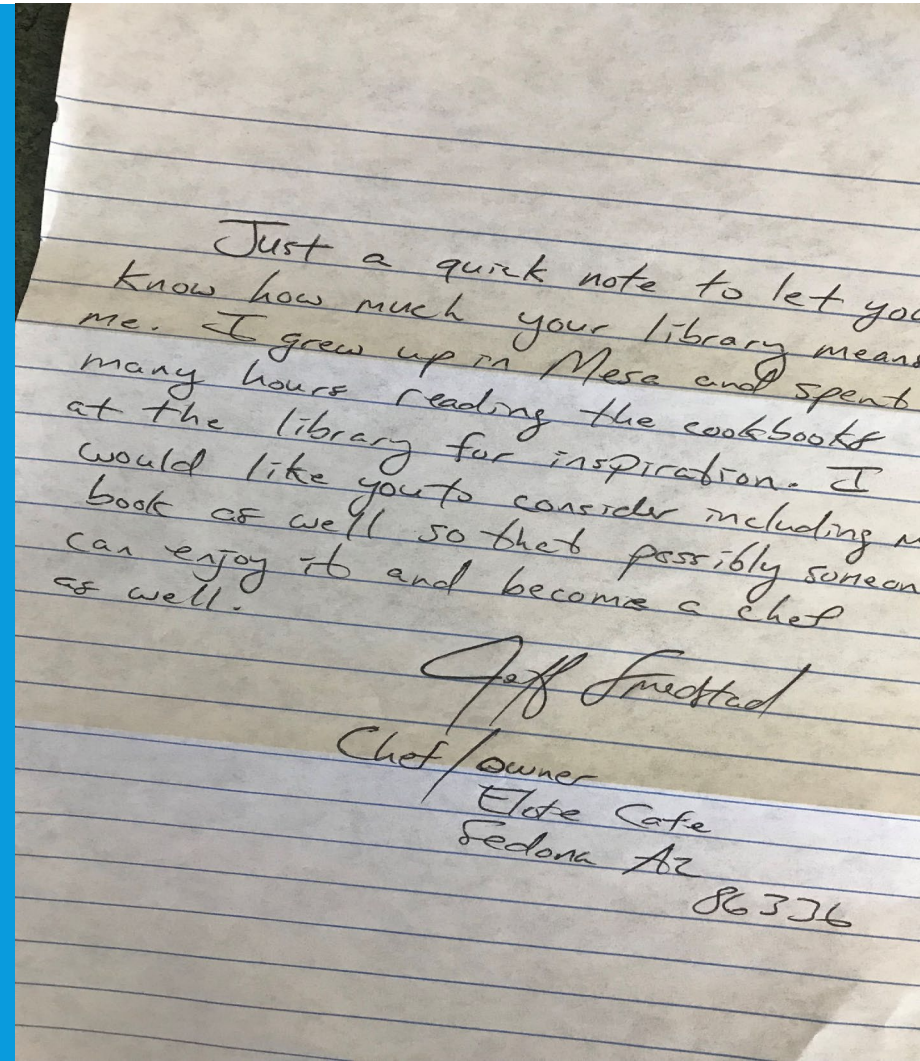 Just a quick note to let you
know how much your library means
me. I grew up in Mesa and spent
many hours reading the cookbooks
at the library for inspiration. I
would like you to consider including
book as well so that possibly someon
can enjoy it and become a chef
as well.
Jeff Smedstad
Chef/owner
Elote Cafe
Sedona Az
86336